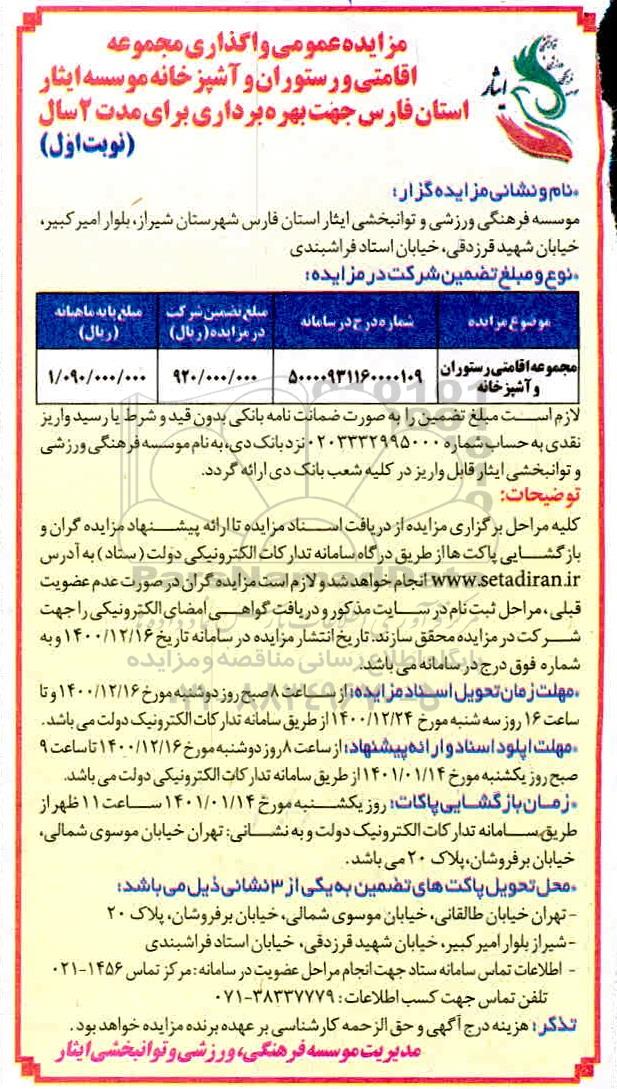 مزایده عمومی واگذاری مجموعه
اقامتی و رستوران و آشپزخانه موسسه ایثار
استان فارس جهت بهره برداری برای مدت ۲ سال
(نوبت اول)
ایثار
•نام و نشانی مزایده گزار:
موسسه فرهنگی ورزشی و توانبخشی ایثار استان فارس شهرستان شیراز، بلوار امیر کبیر،
خیابان شهید قرزدقی، خیابان استاد فراشبندی
•نوع و مبلغ تضمین شرکت در مزایده:
موضوع مزایده | شماره درج در سامانه | مبلغ تضمین شرکت در مزایده (ریال) | مبلغ پایه ماهیانه (ریال)
مجموعه اقامتی رستوران و آشپزخانه | ۵۰۰۰۰۹۳۱۱۶۰۰۰۰۱۰۹ | ۹۲۰/۰۰۰/۰۰۰ | ۱/۰۹۰/۰۰۰/۰۰۰
لازم است مبلغ تضمین را به صورت ضمانت نامه بانکی بدون قید و شرط یا رسید واریز
نقدی به حساب شماره ۰۲۰۳۳۳۲۹۹۵۰۰۰ نزد بانک دی، به نام موسسه فرهنگی ورزشی
و توانبخشی ایثار قابل واریز در کلیه شعب بانک دی ارائه گردد.
توضیحات:
کلیه مراحل برگزاری مزایده از دریافت اسناد مزایده تا ارائه پیشنهاد مزایده گران و
بازگشایی پاکت ها از طریق درگاه سامانه تدارکات الکترونیکی دولت (ستاد) به آدرس
www.setadiran.ir انجام خواهد شد و لازم است مزایده گران در صورت عدم عضویت
قبلی، مراحل ثبت نام در سایت مذکور و دریافت گواهی امضای الکترونیکی را جهت
شرکت در مزایده محقق سازند. تاریخ انتشار مزایده در سامانه تاریخ ۱۴۰۰/۱۲/۱۶ و به
شماره فوق درج در سامانه می باشد.
•مهلت زمان تحویل اسناد مزایده: از ساعت ۸ صبح روز دوشنبه مورخ ۱۴۰۰/۱۲/۱۶ و تا
ساعت ۱۶ روز سه شنبه مورخ ۱۴۰۰/۱۲/۲۴ از طریق سامانه تدارکات الکترونیک دولت می باشد.
•مهلت اپلود اسناد و ارائه پیشنهاد: از ساعت ۸ روز دوشنبه مورخ ۱۴۰۰/۱۲/۱۶ تا ساعت ۹
صبح روز یکشنبه مورخ ۱۴۰۱/۰۱/۱۴ از طریق سامانه تدارکات الکترونیکی دولت می باشد.
•زمان بازگشایی پاکات: روز یکشنبه مورخ ۱۴۰۱/۰۱/۱۴ ساعت ۱۱ ظهر از
طریق سامانه تدارکات الکترونیک دولت و به نشانی: تهران خیابان موسوی شمالی،
خیابان برفروشان، پلاک ۲۰ می باشد.
•محل تحویل پاکت های تضمین به یکی از ۳ نشانی ذیل می باشد:
- تهران خیابان طالقانی، خیابان موسوی شمالی، خیابان برفروشان، پلاک ۲۰
- شیراز بلوار امیر کبیر، خیابان شهید قرزدقی، خیابان استاد فراشبندی
- اطلاعات تماس سامانه ستاد جهت انجام مراحل عضویت در سامانه: مرکز تماس ۱۴۵۶-۰۲۱
تلفن تماس جهت کسب اطلاعات: ۳۸۳۳۷۷۷۹-۰۷۱
تذکر: هزینه درج آگهی و حق الزحمه کارشناسی بر عهده برنده مزایده خواهد بود.
مدیریت موسسه فرهنگی، ورزشی و توانبخشی ایثار